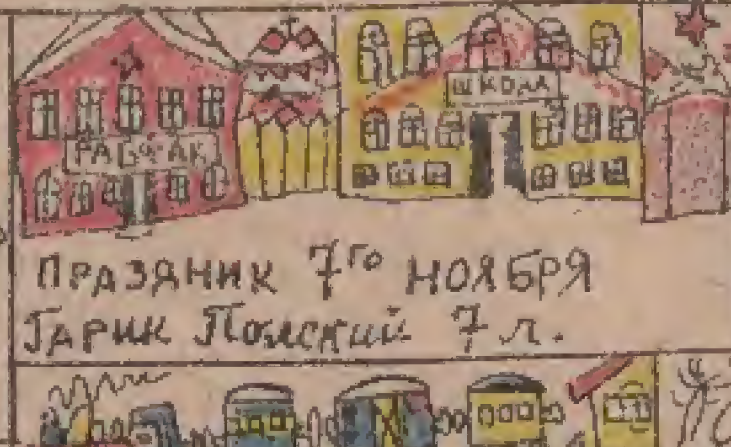 РАБФАК
ШКОЛА
ПРАЗДНИК 7го НОЯБРЯ
ГАРИК Полский 7 л.